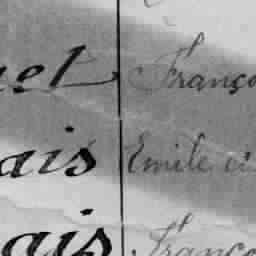 uet Franço
ais Emile
ais Franço